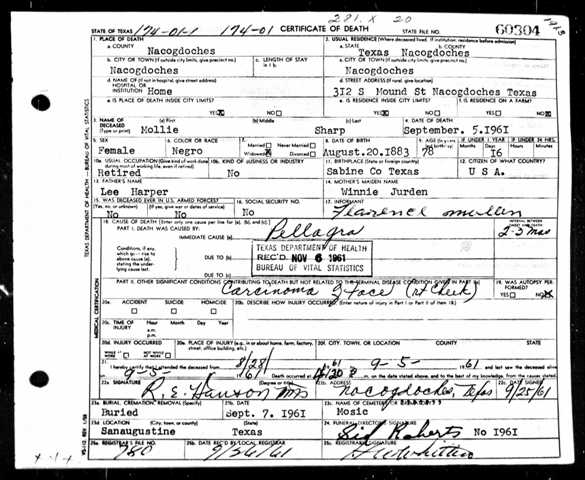 281.X 20
STATE OF TEXAS 174-01-1 174-01 CERTIFICATE OF DEATH STATE FILE NO. 60304
1. PLACE OF DEATH 2. USUAL RESIDENCE (Where deceased lived. If institution: residence before admission)
a. COUNTY a. STATE b. COUNTY
Nacogdoches Texas Nacogdoches
b. CITY OR TOWN (If outside city limits, give precinct no.) c. LENGTH OF STAY c. CITY OR TOWN (If outside city limits, give precinct no.)
Nacogdoches Nacogdoches
d. NAME OF (If not in hospital, give street address) d. STREET ADDRESS (If rural, give location)
HOSPITAL OR INSTITUTION Home 312 S Mound St Nacogdoches Texas
e. IS PLACE OF DEATH INSIDE CITY LIMITS? e. IS RESIDENCE INSIDE CITY LIMITS? f. IS RESIDENCE ON A FARM?
YES NO YES NO YES NO
3. NAME OF DECEASED (Type or print) (a) First (b) Middle (c) Last 4. DATE OF DEATH
Mollie Sharp September. 5.I96I
5. SEX 6. COLOR OR RACE 7. Married Never Married Widowed Divorced 8. DATE OF BIRTH 9. AGE IF UNDER 1 YEAR IF UNDER 24 HRS.
Female Negro August.20.1883 78 I6
10a. USUAL OCCUPATION (Give kind of work done during most of working life, even if retired) 10b. KIND OF BUSINESS OR INDUSTRY 11. BIRTHPLACE (State or foreign country) 12. CITIZEN OF WHAT COUNTRY?
Retired No Sabine Co Texas U S A.
13. FATHER'S NAME 14. MOTHER'S MAIDEN NAME
Lee Harper Winnie Jurden
15. WAS DECEASED EVER IN U.S. ARMED FORCES? 16. SOCIAL SECURITY NO. 17. INFORMANT
(Yes, no, or unknown) (If yes, give war or dates of service)
No No No Florence
18. CAUSE OF DEATH [Enter only one cause per line for (a), (b), and (c).] INTERVAL BETWEEN ONSET AND DEATH
PART I. DEATH WAS CAUSED BY: IMMEDIATE CAUSE (a) Pellagra 2-3 mos
Conditions, if any, which gave rise to above cause (a), stating the underlying cause last. DUE TO (b) DUE TO (c)
TEXAS DEPARTMENT OF HEALTH
REC'D NOV 6 1961
BUREAU OF VITAL STATISTICS
PART II. OTHER SIGNIFICANT CONDITIONS CONTRIBUTING TO DEATH BUT NOT RELATED TO THE TERMINAL DISEASE CONDITION GIVEN IN PART I(a) 19. WAS AUTOPSY PERFORMED?
Carcinoma of face (rt cheek) YES NO
20a. ACCIDENT SUICIDE HOMICIDE 20b. DESCRIBE HOW INJURY OCCURRED. (Enter nature of injury in Part I or Part II of item 18.)
20c. TIME OF INJURY Hour Month Day Year
a.m.
p.m.
20d. INJURY OCCURRED WHILE AT WORK NOT WHILE AT WORK 20e. PLACE OF INJURY (e.g. in or about home, farm, factory, street, office building, etc.) 20f. CITY, TOWN, OR LOCATION COUNTY STATE
21. I hereby certify that I attended the deceased from 8/28 61 9-5- 1961
9-5- 61 Death occurred at 4:20 P m. on the date stated above, and to the best of my knowledge, from the causes stated.
22a. SIGNATURE (Degree or title) 22b. ADDRESS 22c. DATE SIGNED
R. E. MD Nacogdoches, Texas 9/25/61
23a. BURIAL, CREMATION, REMOVAL (Specify) 23b. DATE 23c. NAME OF CEMETERY
Buried Sept. 7. I96I Mosic
23d. LOCATION (State) 24. FUNERAL DIRECTOR'S SIGNATURE
Sanaugustine Texas Sid Roberts No I96I
25a. REGISTRAR'S FILE NO. 25b. DATE REC'D BY LOCAL REGISTRAR 25c. REGISTRAR'S SIGNATURE
780 9/26/61
TEXAS DEPARTMENT OF HEALTH — BUREAU OF VITAL STATISTICS
MEDICAL CERTIFICATION